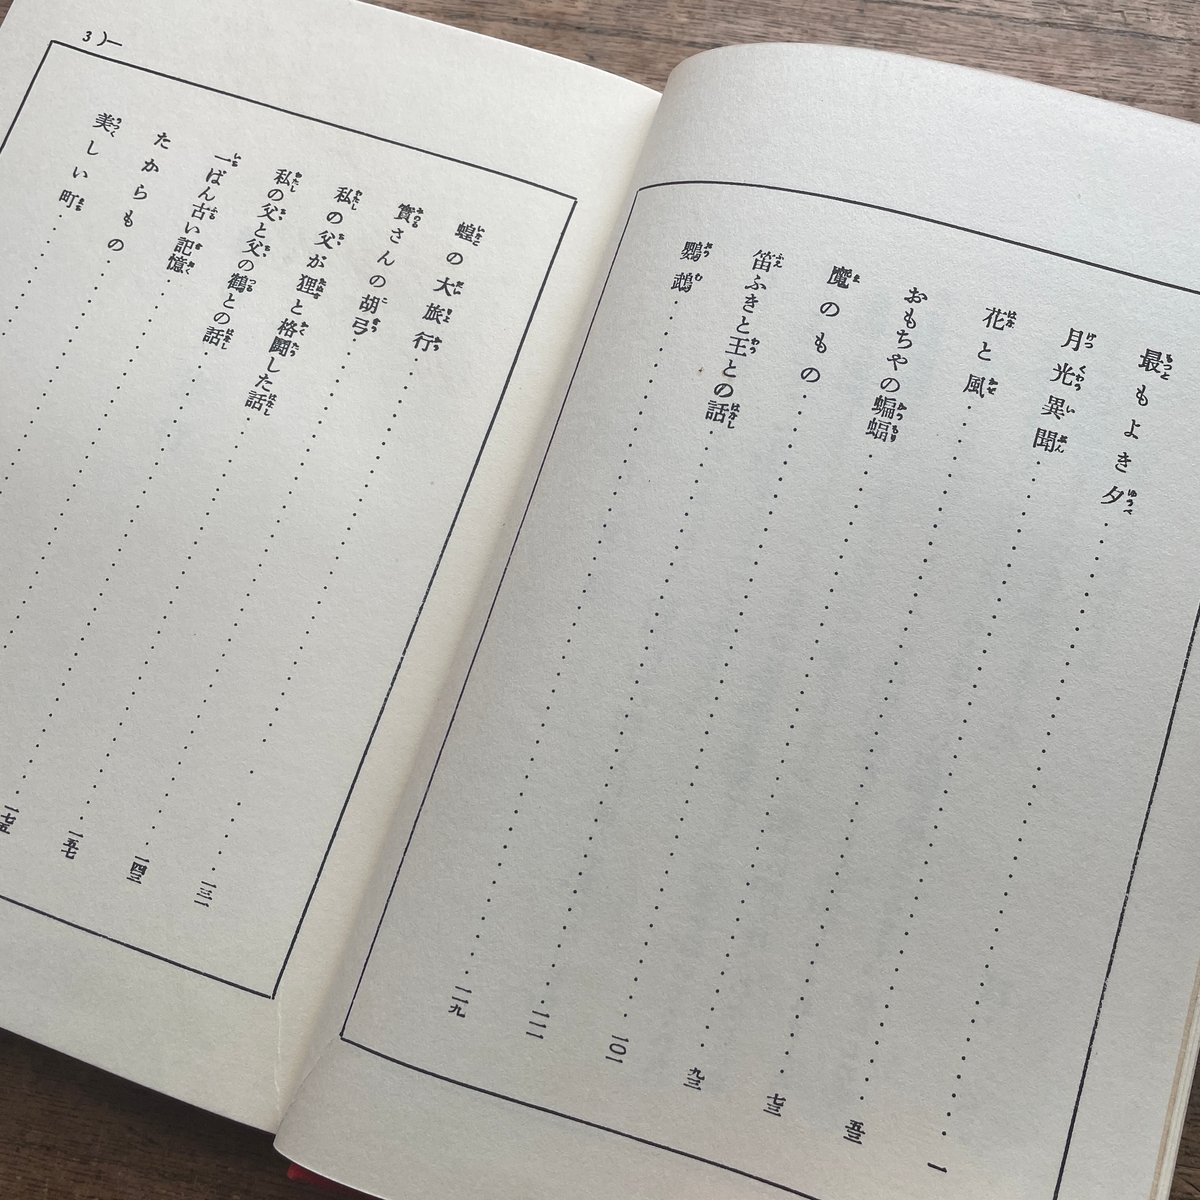 最もよき夕……一
月光異聞……五三
花と風……七三
おもちやの蝙蝠……九三
魔のもの……一〇一
笛ふきと王との話……一一一
鸚鵡……一一九
蝗の大旅行……一三一
實さんの胡弓……一四三
私の父が狸と格闘した話……一五七
私の父と父の鶴との話……一七五
一ばん古い記憶……
たからもの……
美しい町……